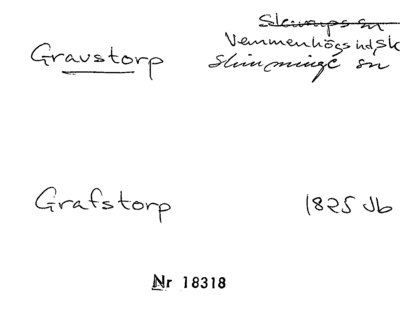 Skurups sn
Vemmenhögs hd, Sk
Gravstorp
Skurups sn
Grafstorp 1825 Jb
Nr 18318